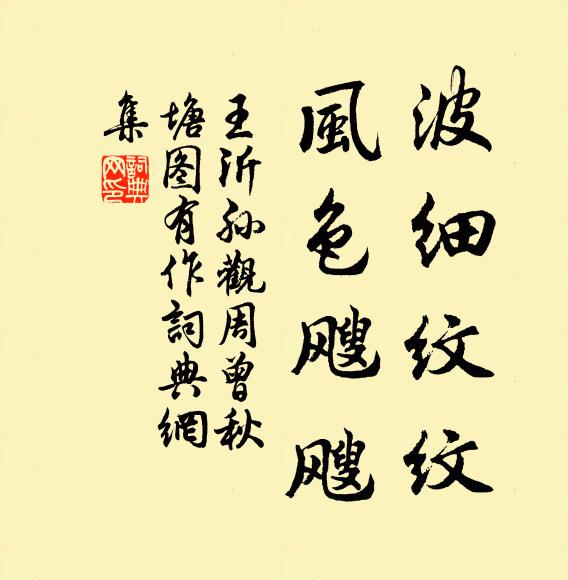 波细纹纹
風色飕飕
王沂孙觀周曾秋
塘图有作詞典網
集
詞典网印